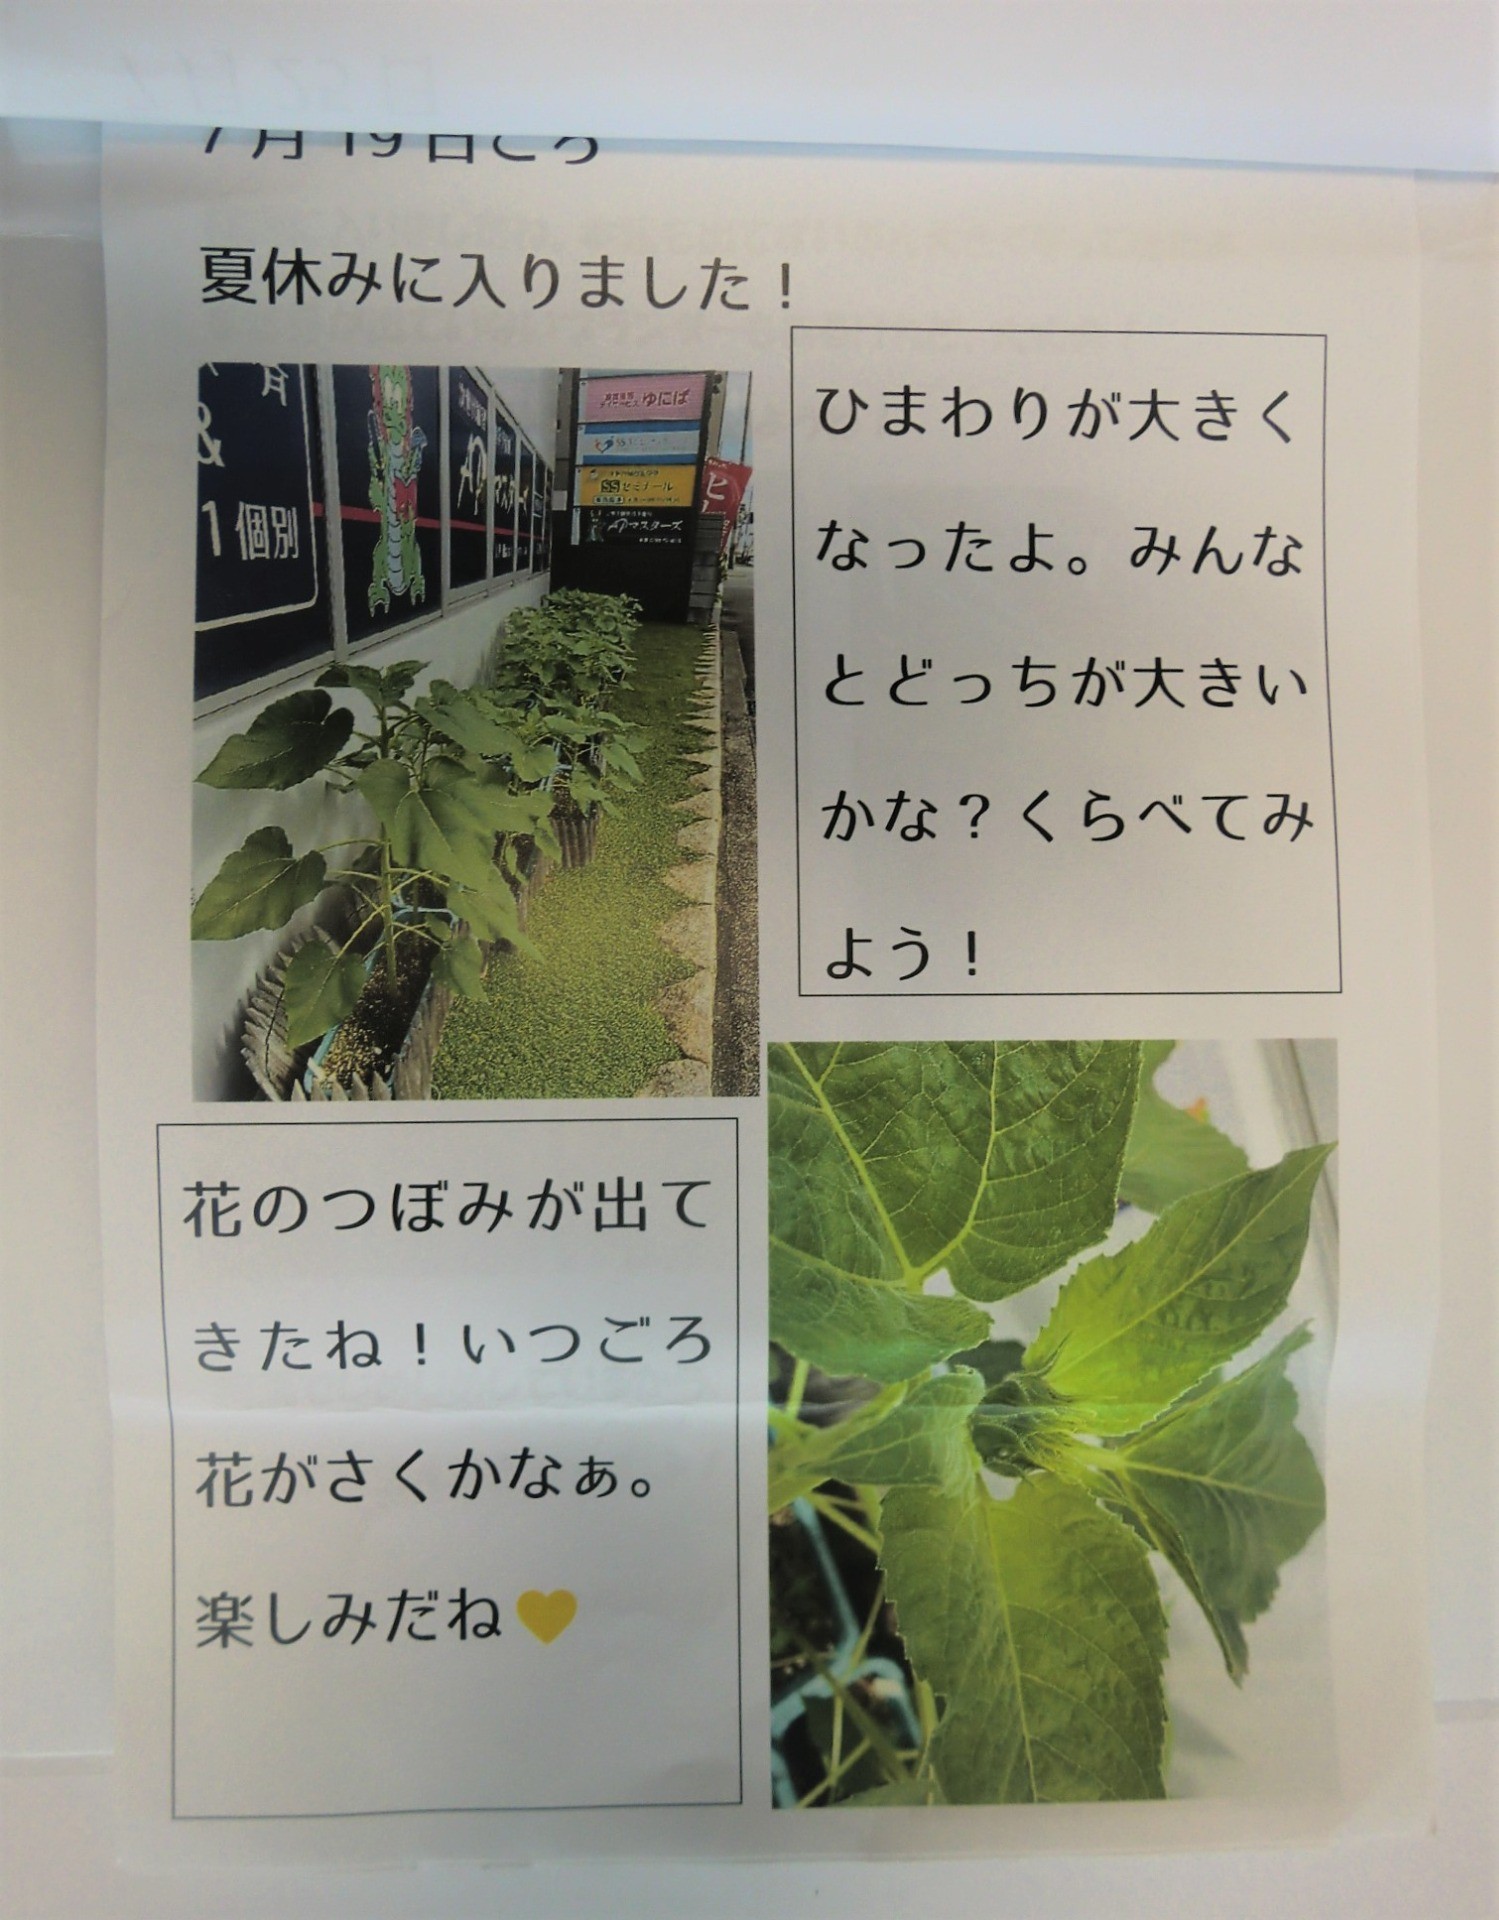 7月19日ごろ
夏休みに入りました！
月
&
1個別
ゆにぱ
SSセミナー
APマスターズ
ヒ
ひまわりが大きく
なったよ。みんな
とどっちが大きい
かな？くらべてみ
よう！
花のつぼみが出て
きたね！いつごろ
花がさくかなぁ。
楽しみだね